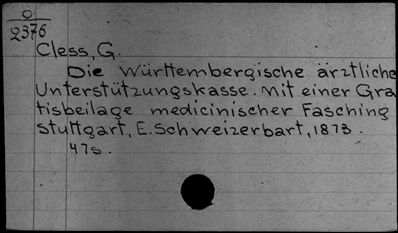 O
2376
Cless, G.
Die Württembergische ärztliche
Unterstützungskasse. Mit einer Gra
tisbeilage medicinischer Fasching
Stuttgart, E. Schweizerbart, 1873.
47s.